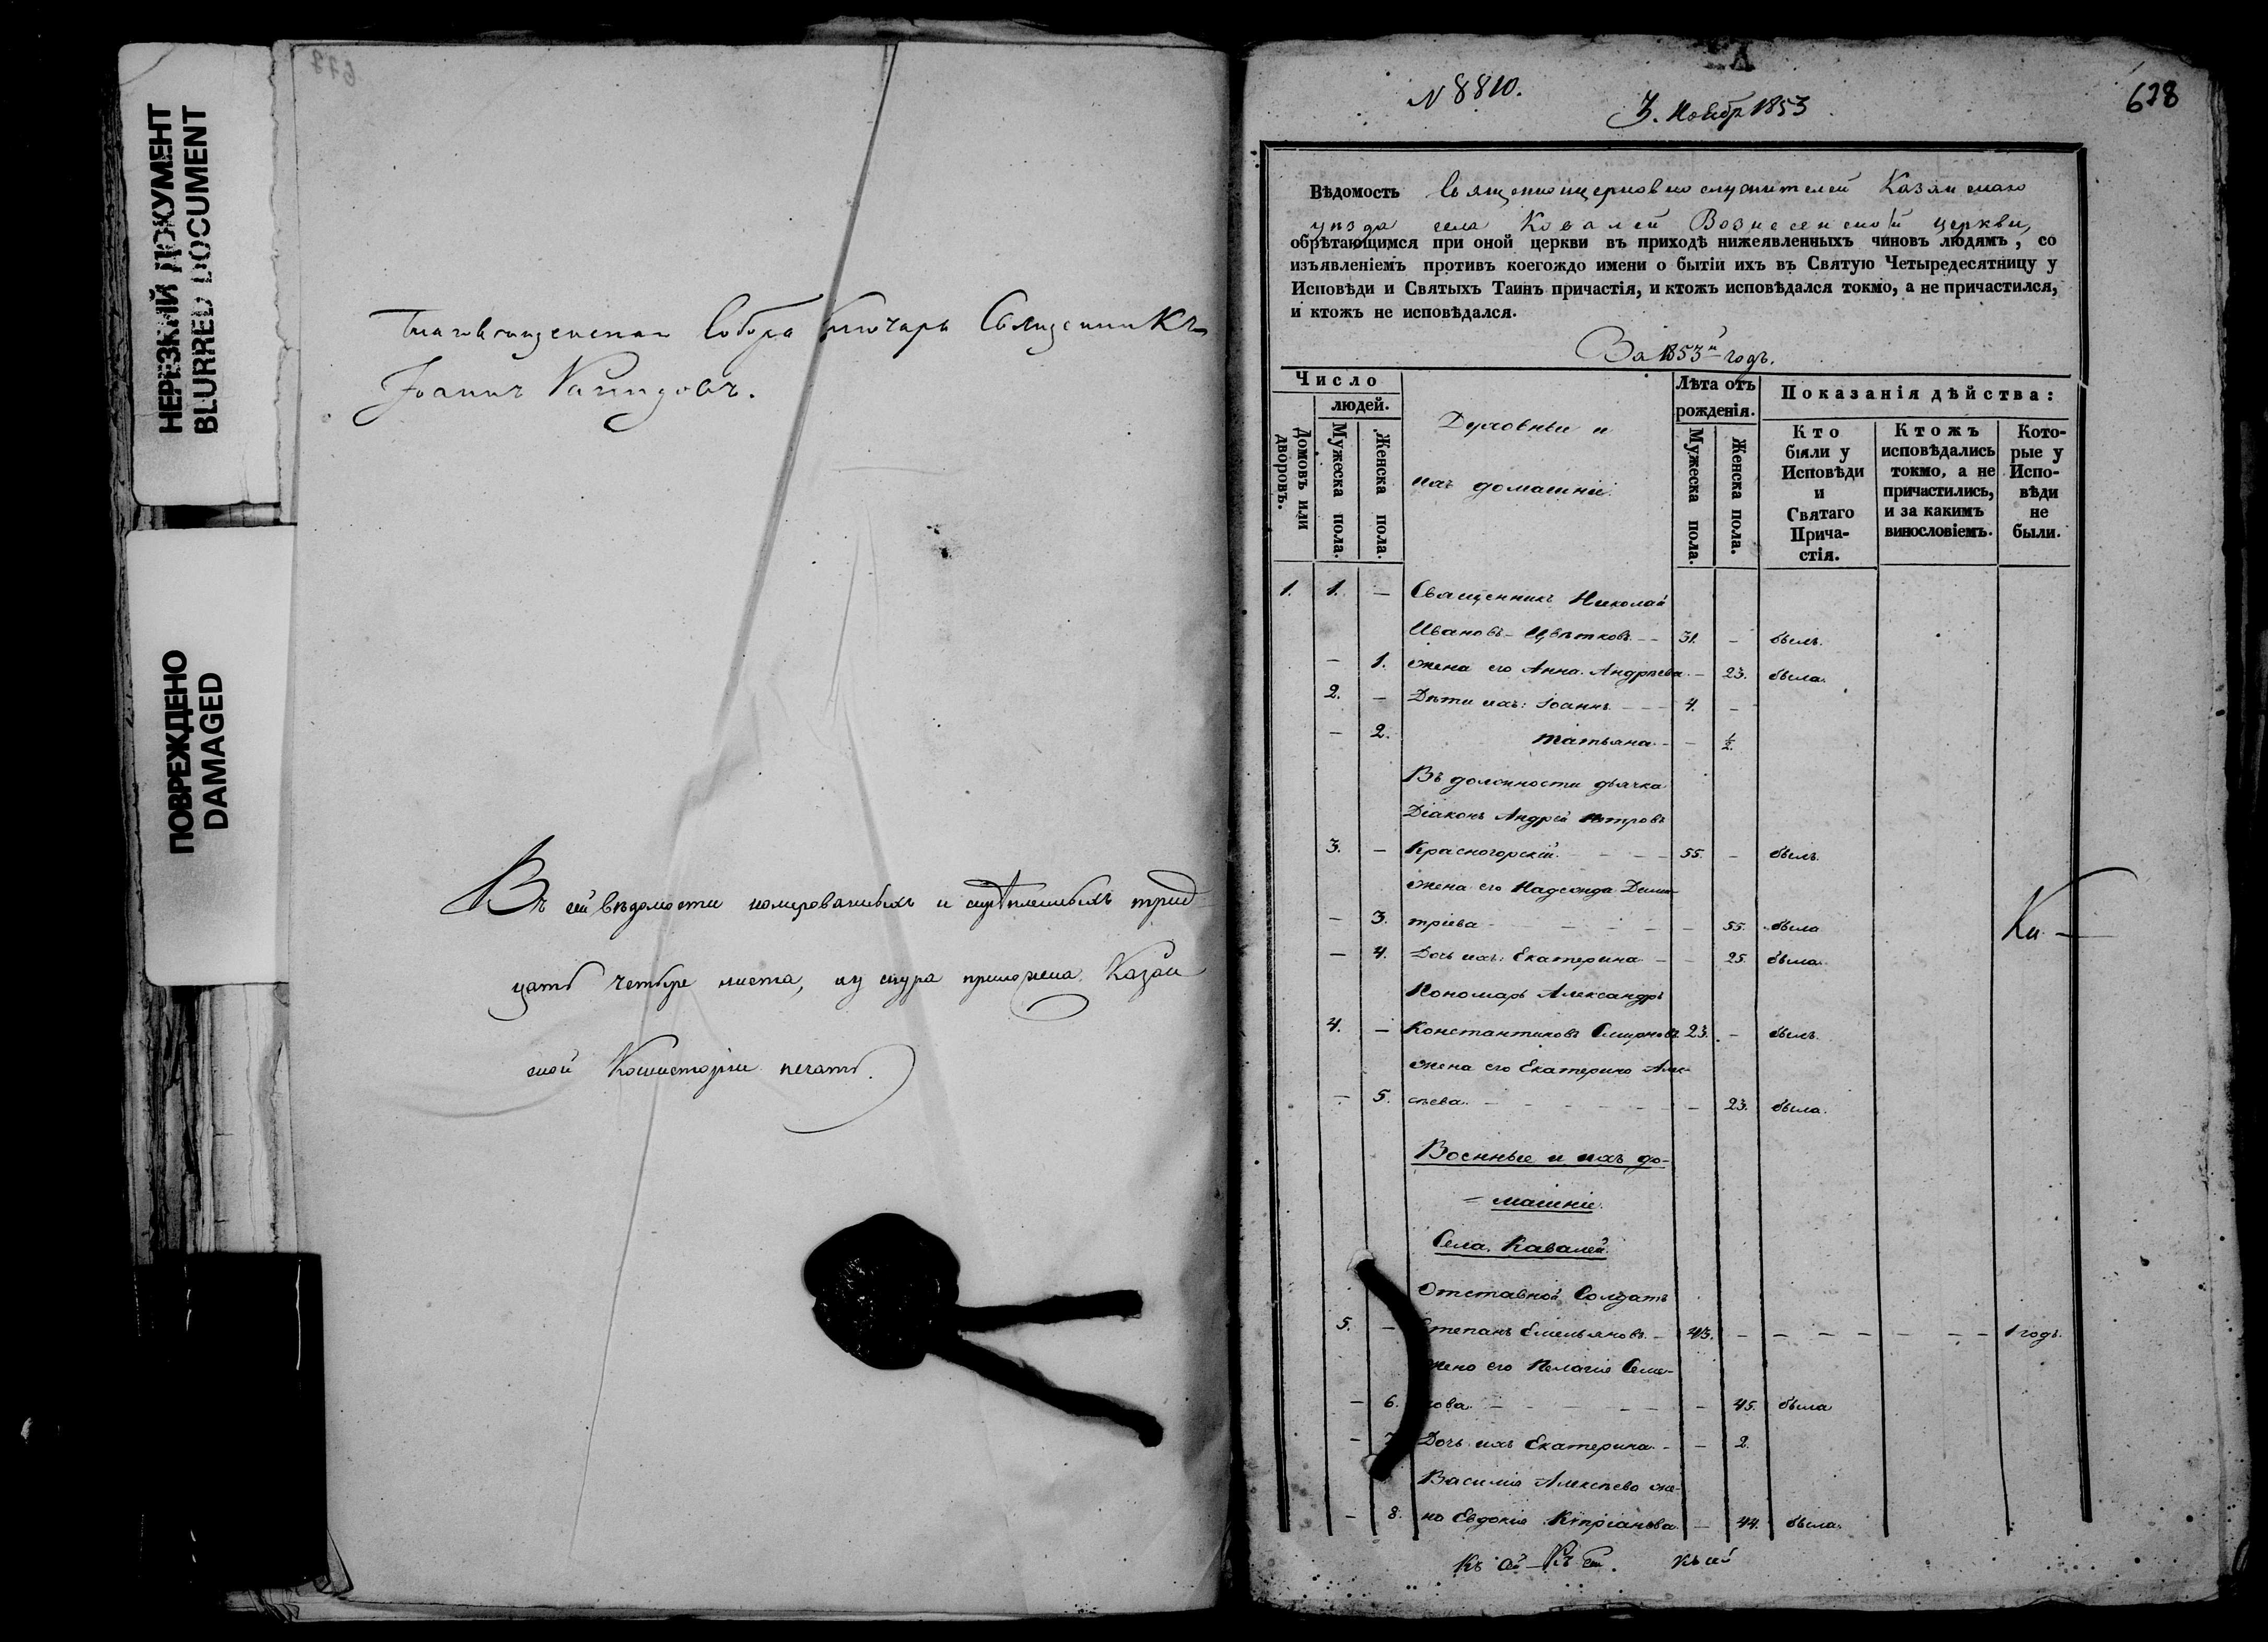 НЕРЕЗКИЙ ДОКУМЕНТ
BLURRED DOCUMENT
ПОВРЕЖДЕНО
DAMAGED
677
Благовѣщенскаго Собора Ключарь Священникъ
Іоаннъ
Въ сей вѣдомости номерованныхъ и скрѣпленныхъ трид-
цать четыре листа, къ шнуру приложена Казан
ской Консисторіи печать.
N 8810.
3. Ноябр 1853
678
Вѣдомость Священноцерковнослужителей Казанскаго
уѣзда села Ковалей Вознесенской церкви,
обрѣтающимся при оной церкви въ приходѣ нижеявленныхъ чиновъ людямъ, со
изъявленіемъ противъ коегождо имени о бытіи ихъ въ Святую Четыредесятницу у
Исповѣди и Святыхъ Таинъ причастія, и ктожъ исповѣдался токмо, а не причастился,
и ктожъ не исповѣдался.
За 1853й годъ.
Число
людей.
Домовъ или дворовъ.
Мужеска пола.
Женска пола.
Духовные и
ихъ домашніе.
Лѣта отъ
рожденія.
Мужеска пола.
Женска пола.
Показанія дѣйства:
Кто
были у
Исповѣди
и
Святаго
Прича-
стія.
Ктожъ
исповѣдались
токмо, а не
причастились,
и за какимъ
винословіемъ.
Кото-
рые у
Испо-
вѣди
не
были.
1. 1. — Священникъ Николай
Ивановъ Цвѣтковъ — 31. — былъ.
— 1. жена его Анна Андреева — 23. была.
2. — Дѣти ихъ: Іоаннъ — 4. —
— 2. Татьяна — — ½.
Въ должности дьячка
Діаконъ Андрей Петровъ
3. — Красногорскій — 55. — былъ.
жена его Надежда Дими-
— 3. тріева — — 55. была
— 4. Дочь ихъ: Екатерина — — 25. была.
Ка —
Пономарь Александръ
4. — Константиновъ Смирновъ 23. — былъ.
жена его Екатерина Алек-
— 5. сѣева — — 23. была.
Военные и ихъ до-
— машніе.
Села Кавалей.
Отставной Солдатъ
5. — Степанъ Емельяновъ — 43. — — — — — — 1 годъ.
жена его Пелагія Семе-
— 6. нова — — 45. была
— 7. Дочь ихъ Екатерина — — 2.
Василія Алексѣева же-
— 8. на Евдокія Кипріанова — 44. была.
Къ сей